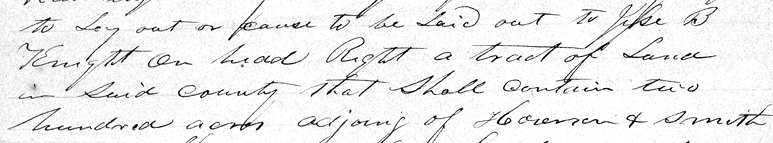 to Lay out or cause to be Laid out to Jesse B
Knight on head Right a tract of Land
in Said county that Shall contain two
hundred acres adjoing of Howerson & Smith